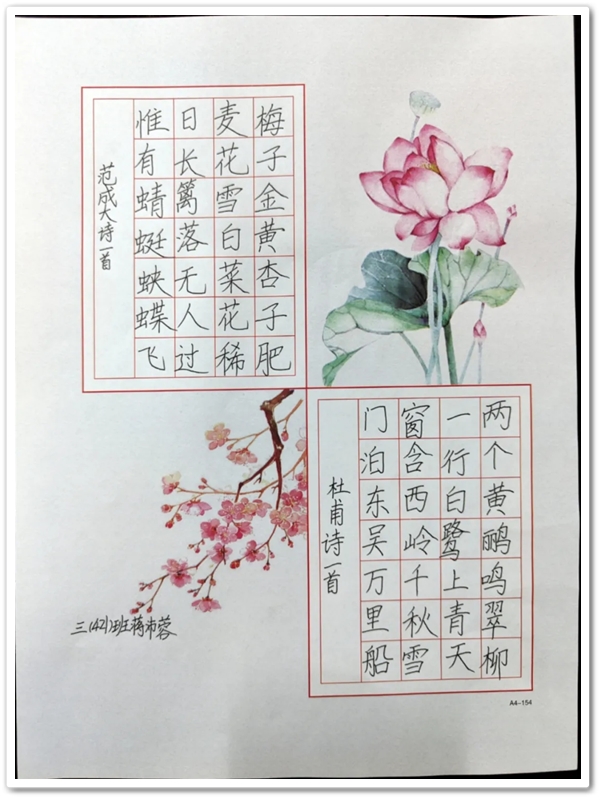 梅子金黄杏子肥
麦花雪白菜花稀
日长篱落无人过
惟有蜻蜓蛱蝶飞
范成大诗一首
两个黄鹂鸣翠柳
一行白鹭上青天
窗含西岭千秋雪
门泊东吴万里船
杜甫诗一首
三(42)班
A4-154